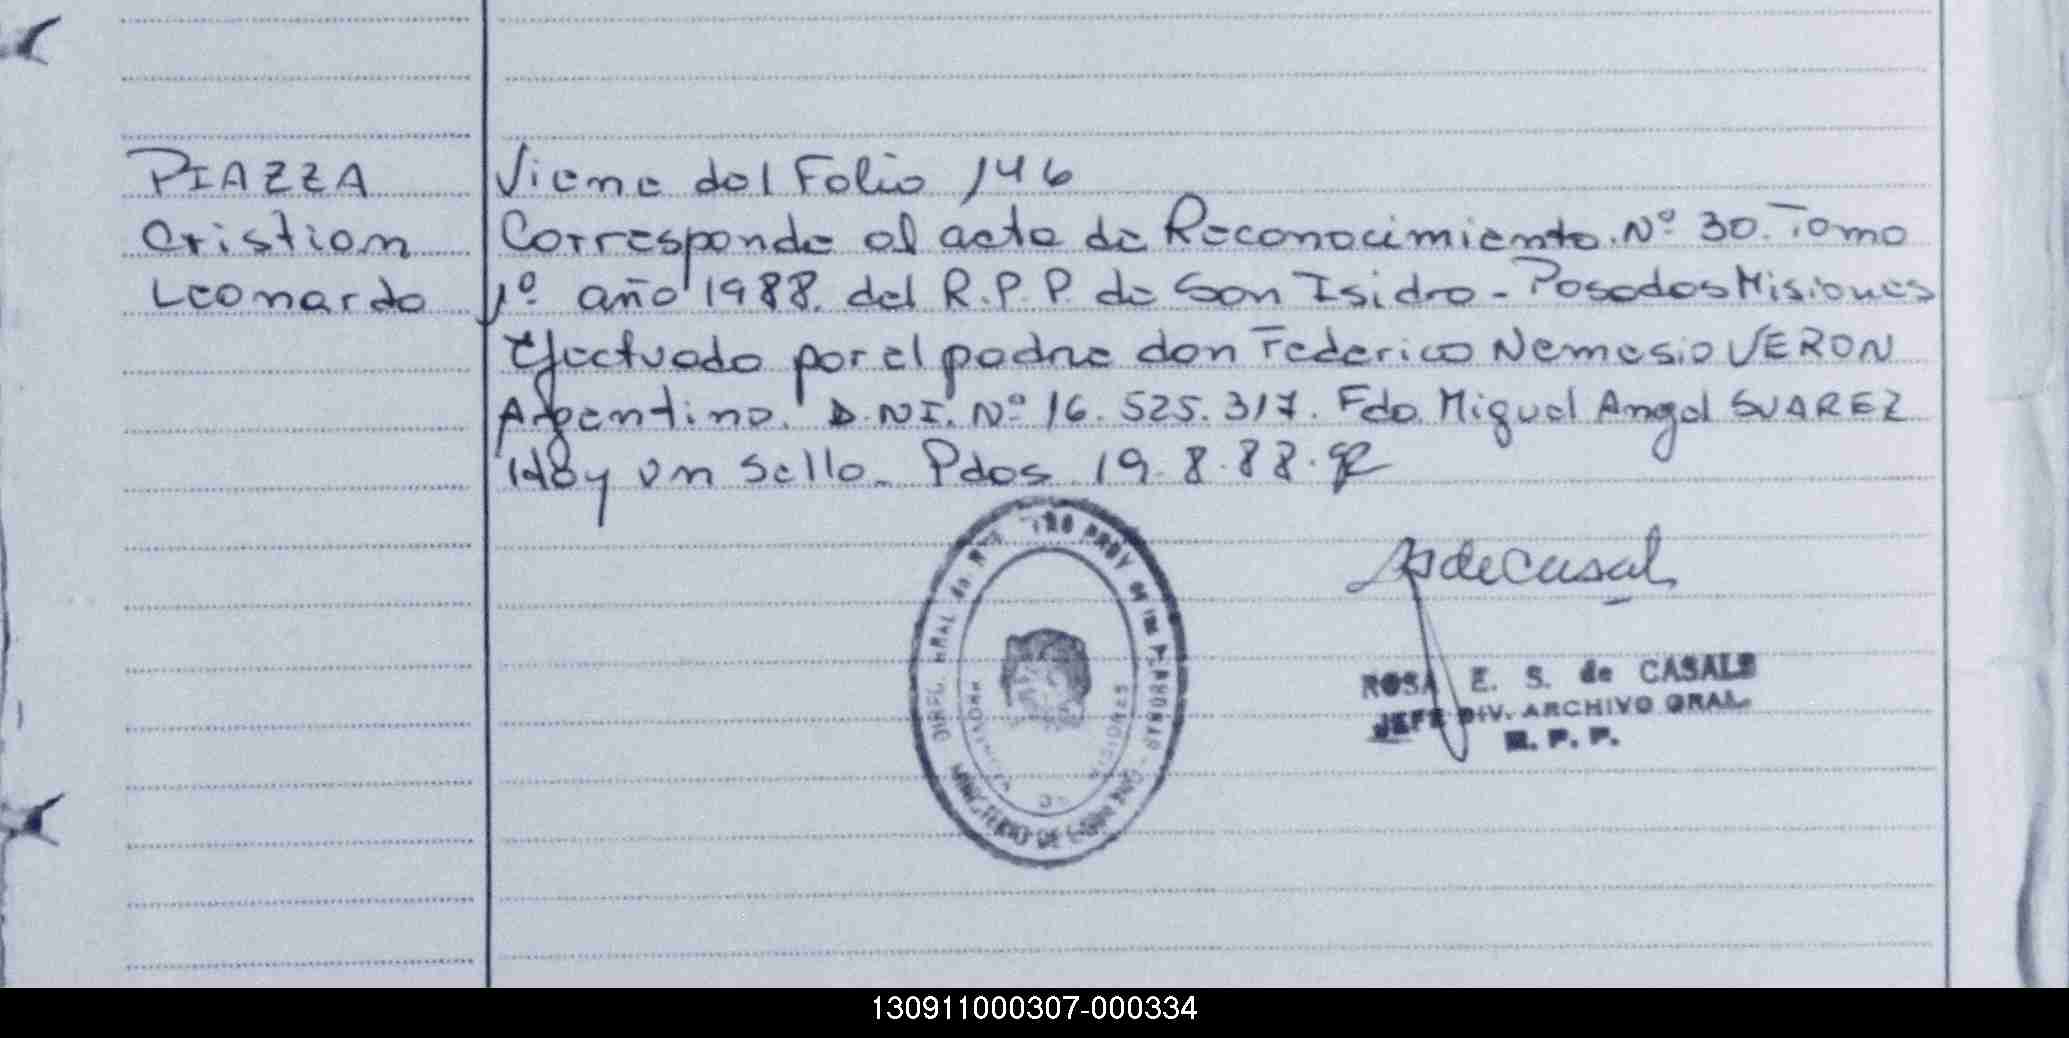 PIAZZA
Cristian
Leonardo
Viene del Folio 146
Corresponde al acta de Reconocimiento. Nº 30. Tomo
1º año 1988. del R.P.P. de San Isidro - Posadas Misiones
Efectuado por el padre don Federico Nemesio VERON
Argentino. D.NI. Nº 16.525.317. Fdo. Miguel Angel SUAREZ
Hay un sello. Pdas 19.8.88.
de Casals
ROSA E. S. de CASALS
JEFE DIV. ARCHIVO GRAL.
R. P. P.
PROVINCIA DE MISIONES
130911000307-000334